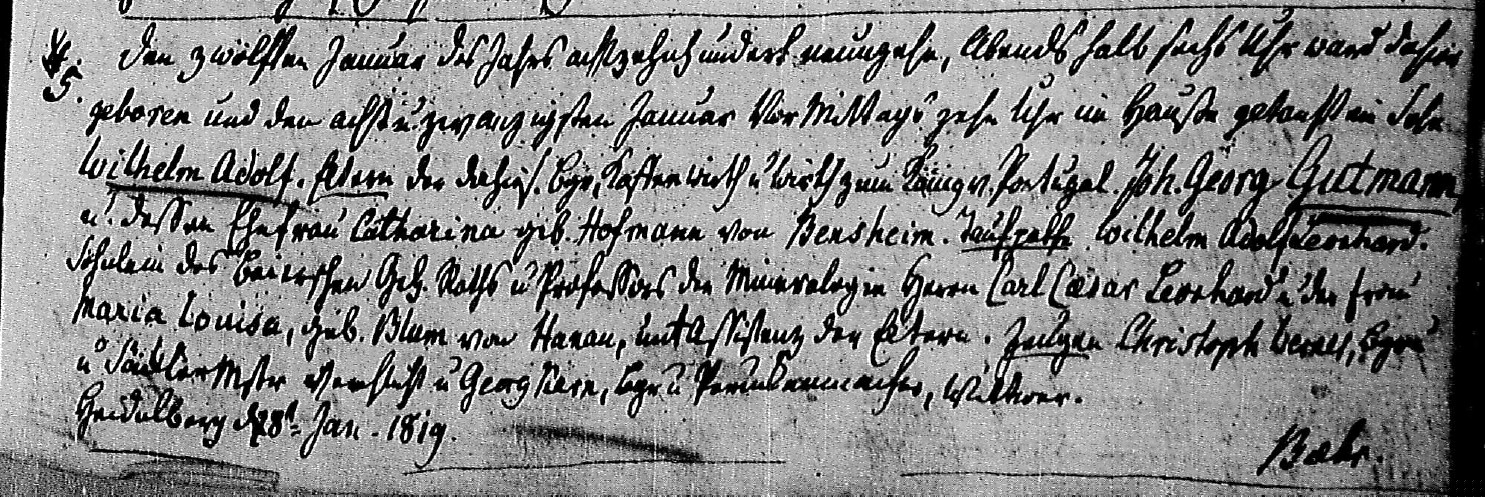 5. Den zwölften Januar des Jahrs achtzehnhundert neunzehn, Abends halb sechs Uhr ward dahier
geboren und den acht u. zwanzigsten Januar VorMittags zehn Uhr im Hause getauft ein Sohn
Wilhelm Adolf. Eltern der dahies. Bgr, Gastwirth u Wirth zum König v. Portugal Joh. Georg Gutmann
u. dessen Ehefrau Catharina geb. Hofmann von Bensheim. Taufpathe Wilhelm Adolf Leonhard.
des Geh. Raths u Professors der Mineralogie Herrn Carl Cæsar Leonhard u der Frau
Maria Louisa, geb. Blum von Hanau, mit Assistenz der Eltern. Zeugen Christoph Bgr
u SattlerMstr u Georg Kern, Bgr u Perückenmacher, Wittwer.
Heidelberg d 28t Jan. 1819.
Bæhr.